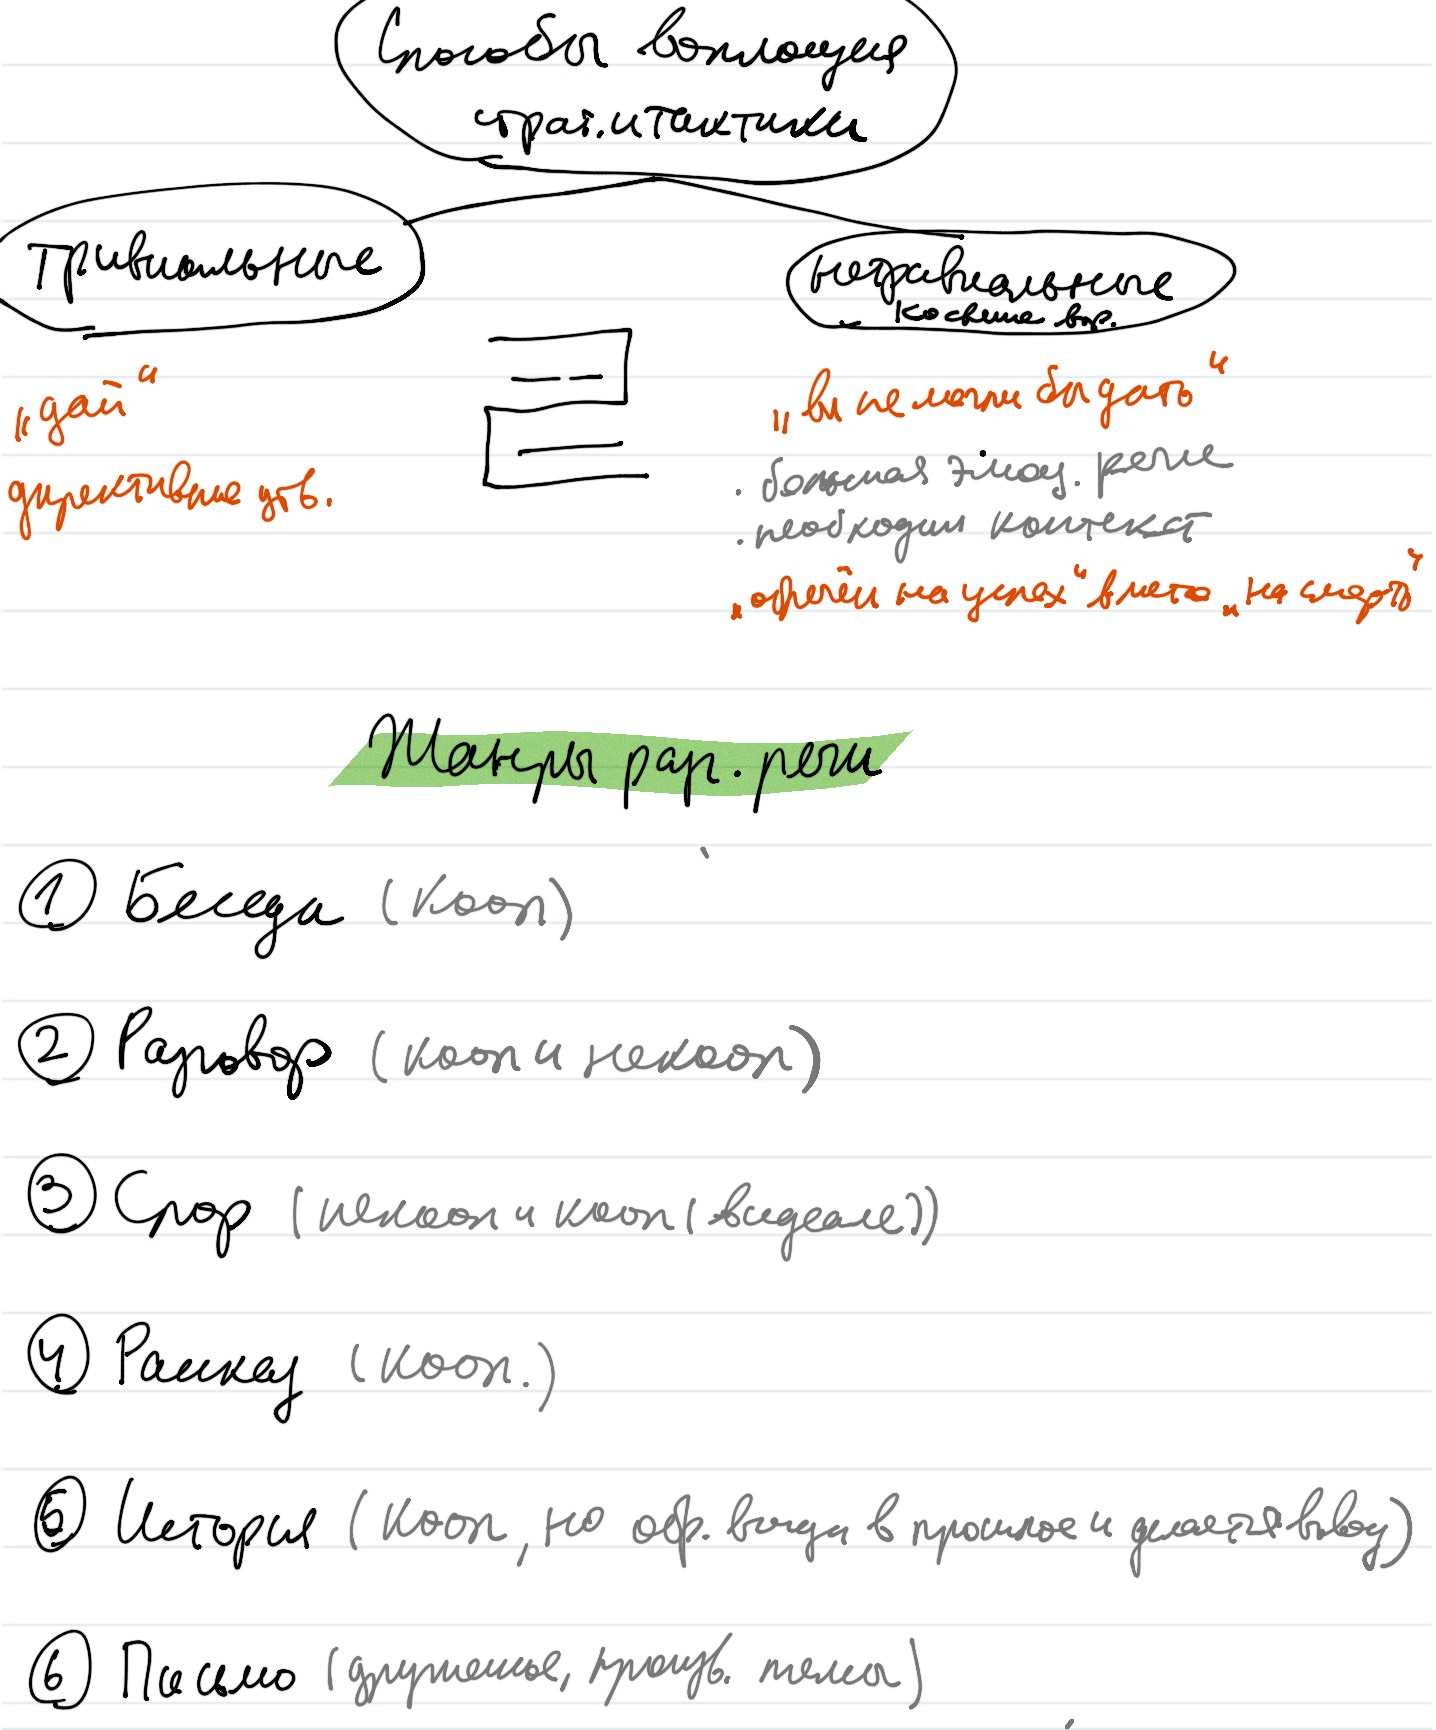 Способы воплощения
страт. и тактики
тривиальные
нетривиальные
косвенные выр.
„дай“
директивные утв.
„вы не могли бы дать“
· большая эмоц. речи
· необходим контекст
„обречён на успех“ вместо „на смерть“
Жанры раз. речи
① Беседа (кооп)
② Разговор (кооп и некооп)
③ Спор (некооп и кооп (в идеале))
④ Рассказ (кооп.)
⑤ История (кооп, но обр. всегда в прошлое и делается вывод)
⑥ Письмо (дружеское, произв. темы)